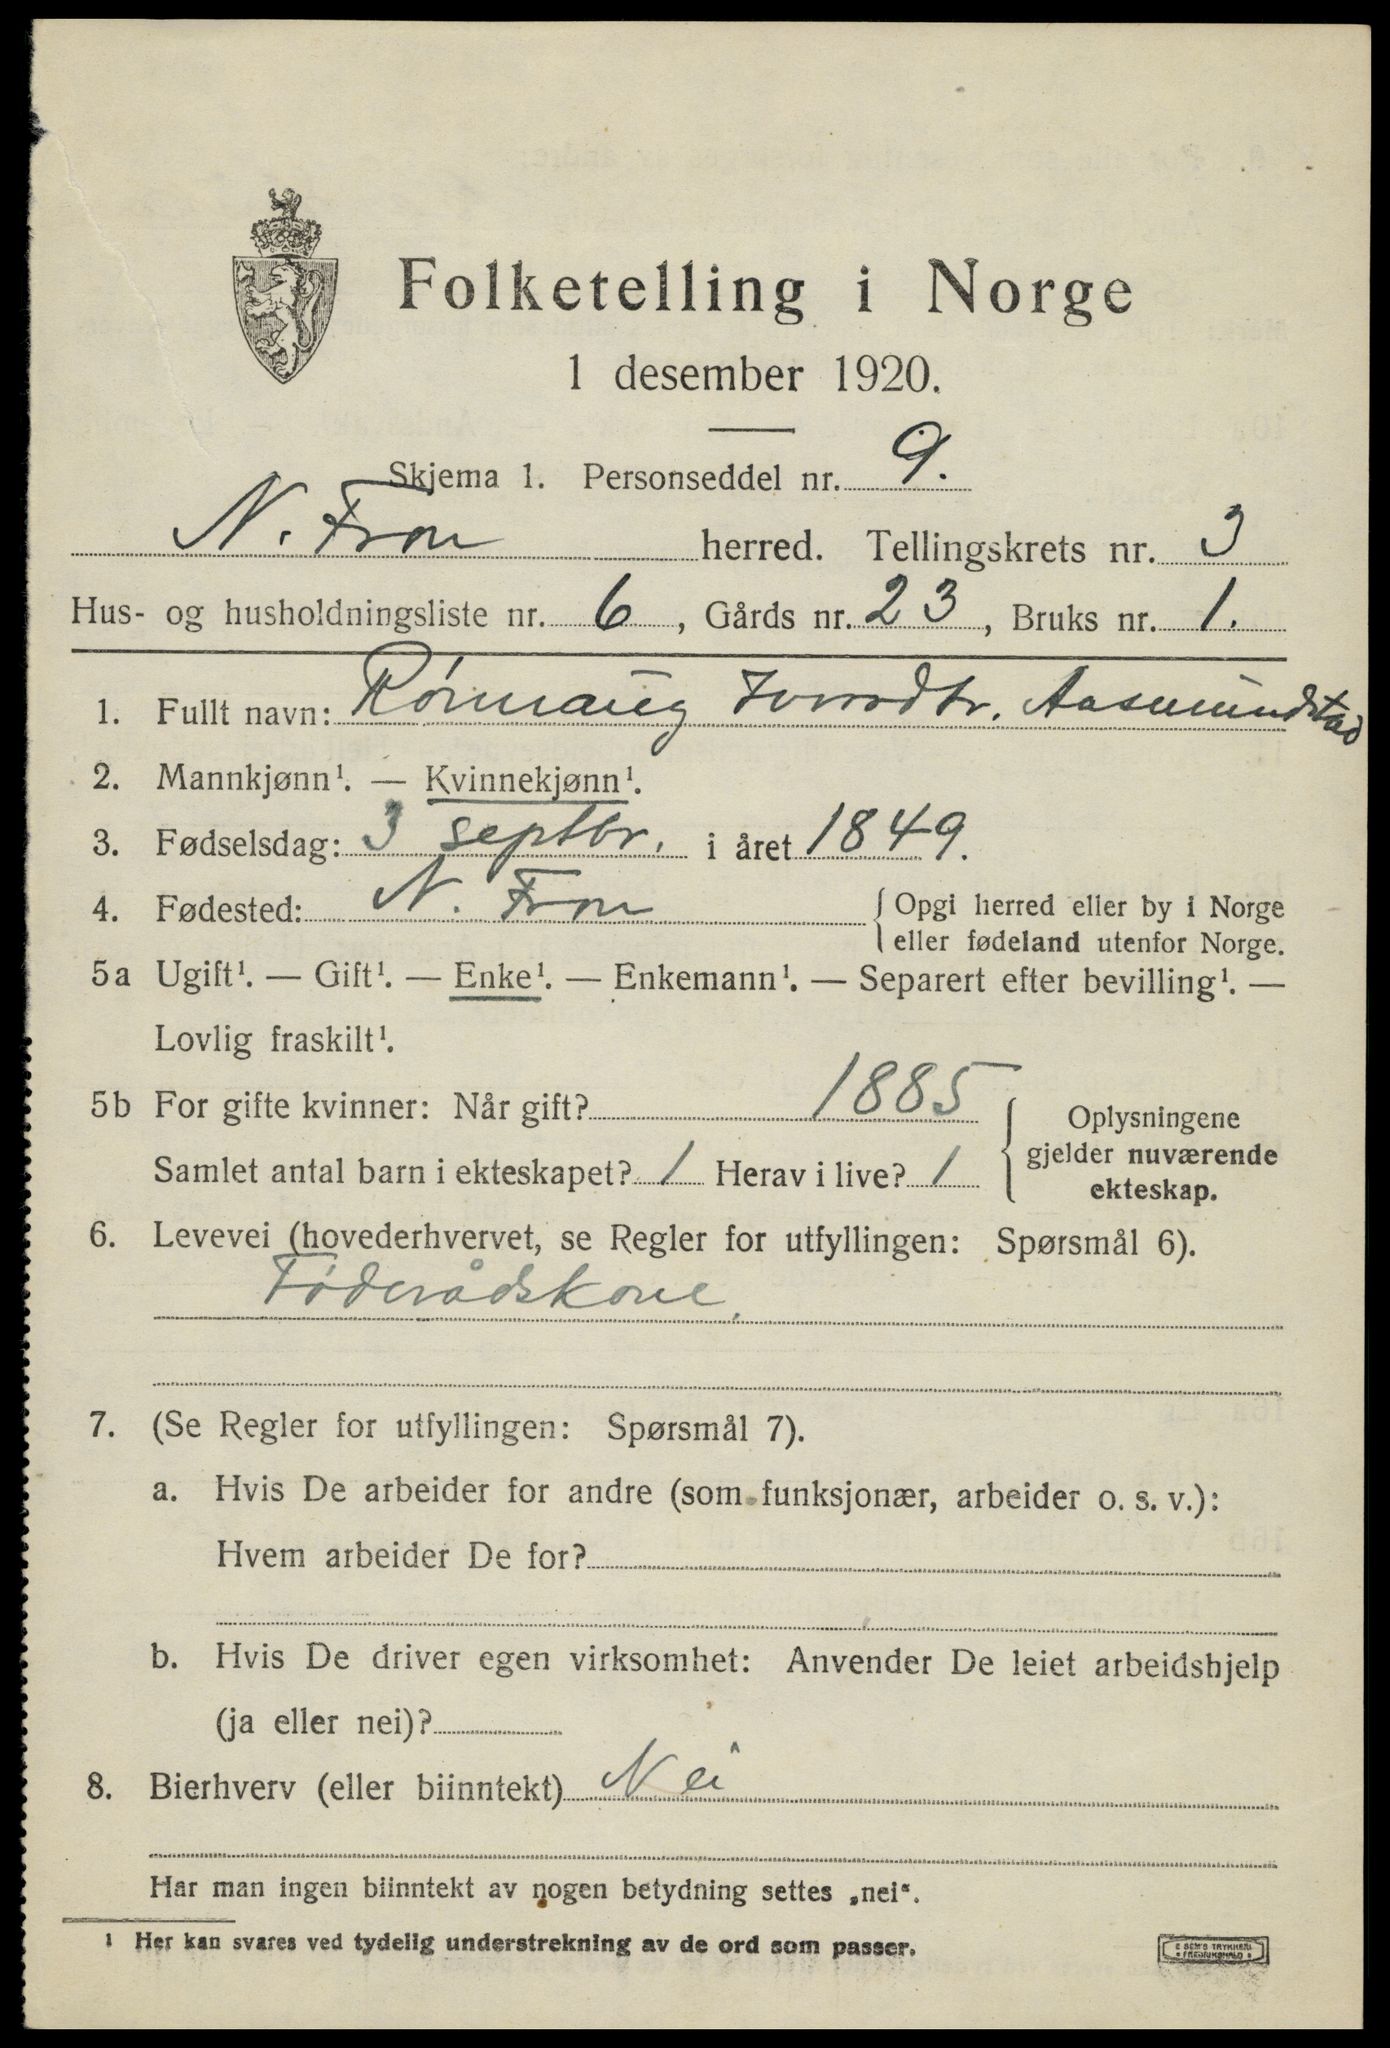 Folketelling i Norge
1 desember 1920.
Skjema 1. Personseddel nr. 9.
N. Fron herred. Tellingskrets nr. 3
Hus- og husholdningsliste nr. 6, Gårds nr. 23, Bruks nr. 1.
1. Fullt navn: Rønnaug Aasmundstad
2. Mannkjønn¹. — Kvinnekjønn¹.
3. Fødselsdag: 3 septbr. i året 1849.
4. Fødested: N. Fron { Opgi herred eller by i Norge
eller fødeland utenfor Norge.
5a Ugift¹. — Gift¹. — Enke¹. — Enkemann¹. — Separert efter bevilling¹. —
Lovlig fraskilt¹.
5b For gifte kvinner: Når gift? 1885
Samlet antal barn i ekteskapet? 1 Herav i live? 1
{ Oplysningene
gjelder nuværende
ekteskap.
6. Levevei (hovederhvervet, se Regler for utfyllingen: Spørsmål 6).
Føderådskone.
7. (Se Regler for utfyllingen: Spørsmål 7).
a. Hvis De arbeider for andre (som funksjonær, arbeider o. s. v.):
Hvem arbeider De for?
b. Hvis De driver egen virksomhet: Anvender De leiet arbeidshjelp
(ja eller nei)?
8. Bierhverv (eller biinntekt) Nei
Har man ingen biinntekt av nogen betydning settes „nei“.
¹ Her kan svares ved tydelig understrekning av de ord som passer.
E SEM'S TRYKKERI
FREDRIKSHALD